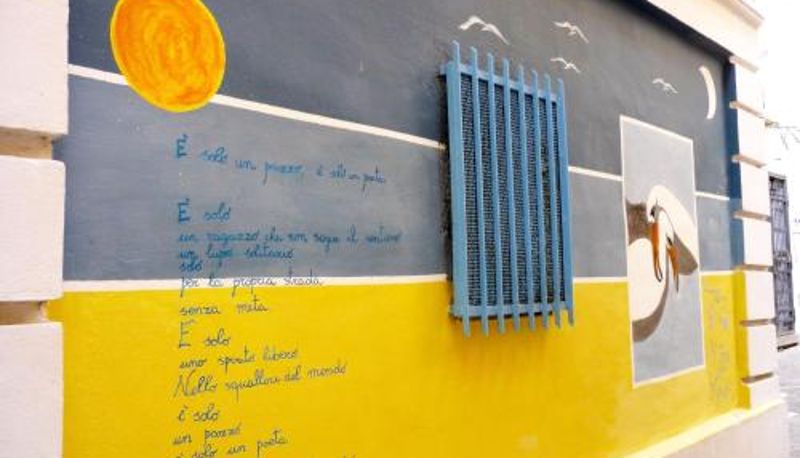 È solo un pazzo, è solo un poeta
È solo
un ragazzo che non segue il sentiero
un lupo solitario
solo
per la propria strada
senza meta
È solo
uno spirito libero
Nello squallore del mondo
è solo
un pazzo
è solo un poeta